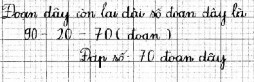 Đoạn dây còn lại dài số đoạn dây là
90 - 20 = 70 (đoạn)
Đáp số: 70 đoạn dây